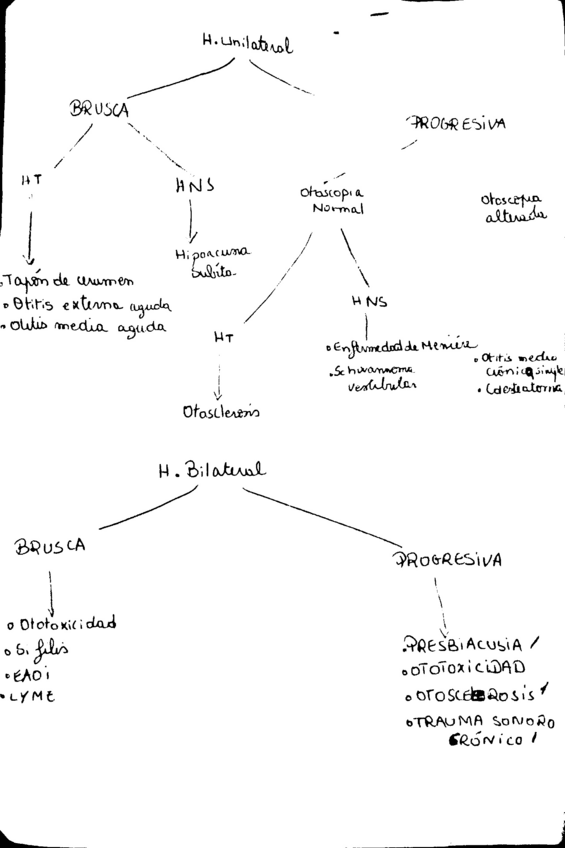 H. Unilateral
BRUSCA
PROGRESIVA
HT
HNS
Otoscopia
Normal
Otoscopia
alterada
Hipoacusia
Súbita
Tapón de cerumen
• Otitis externa aguda
• Otitis media aguda
HT
HNS
• Enfermedad de Meniére
• Schwannoma
vestibular
• Otitis media
crónica simple
• Colesteatoma
Otosclerosis
H. Bilateral
BRUSCA
PROGRESIVA
• Ototoxicidad
• Sífilis
• EAOI
• LYME
• PRESBIACUSIA /
• OTOTOXICIDAD
• OTOSCLEROSIS /
• TRAUMA SONORO
CRÓNICO /